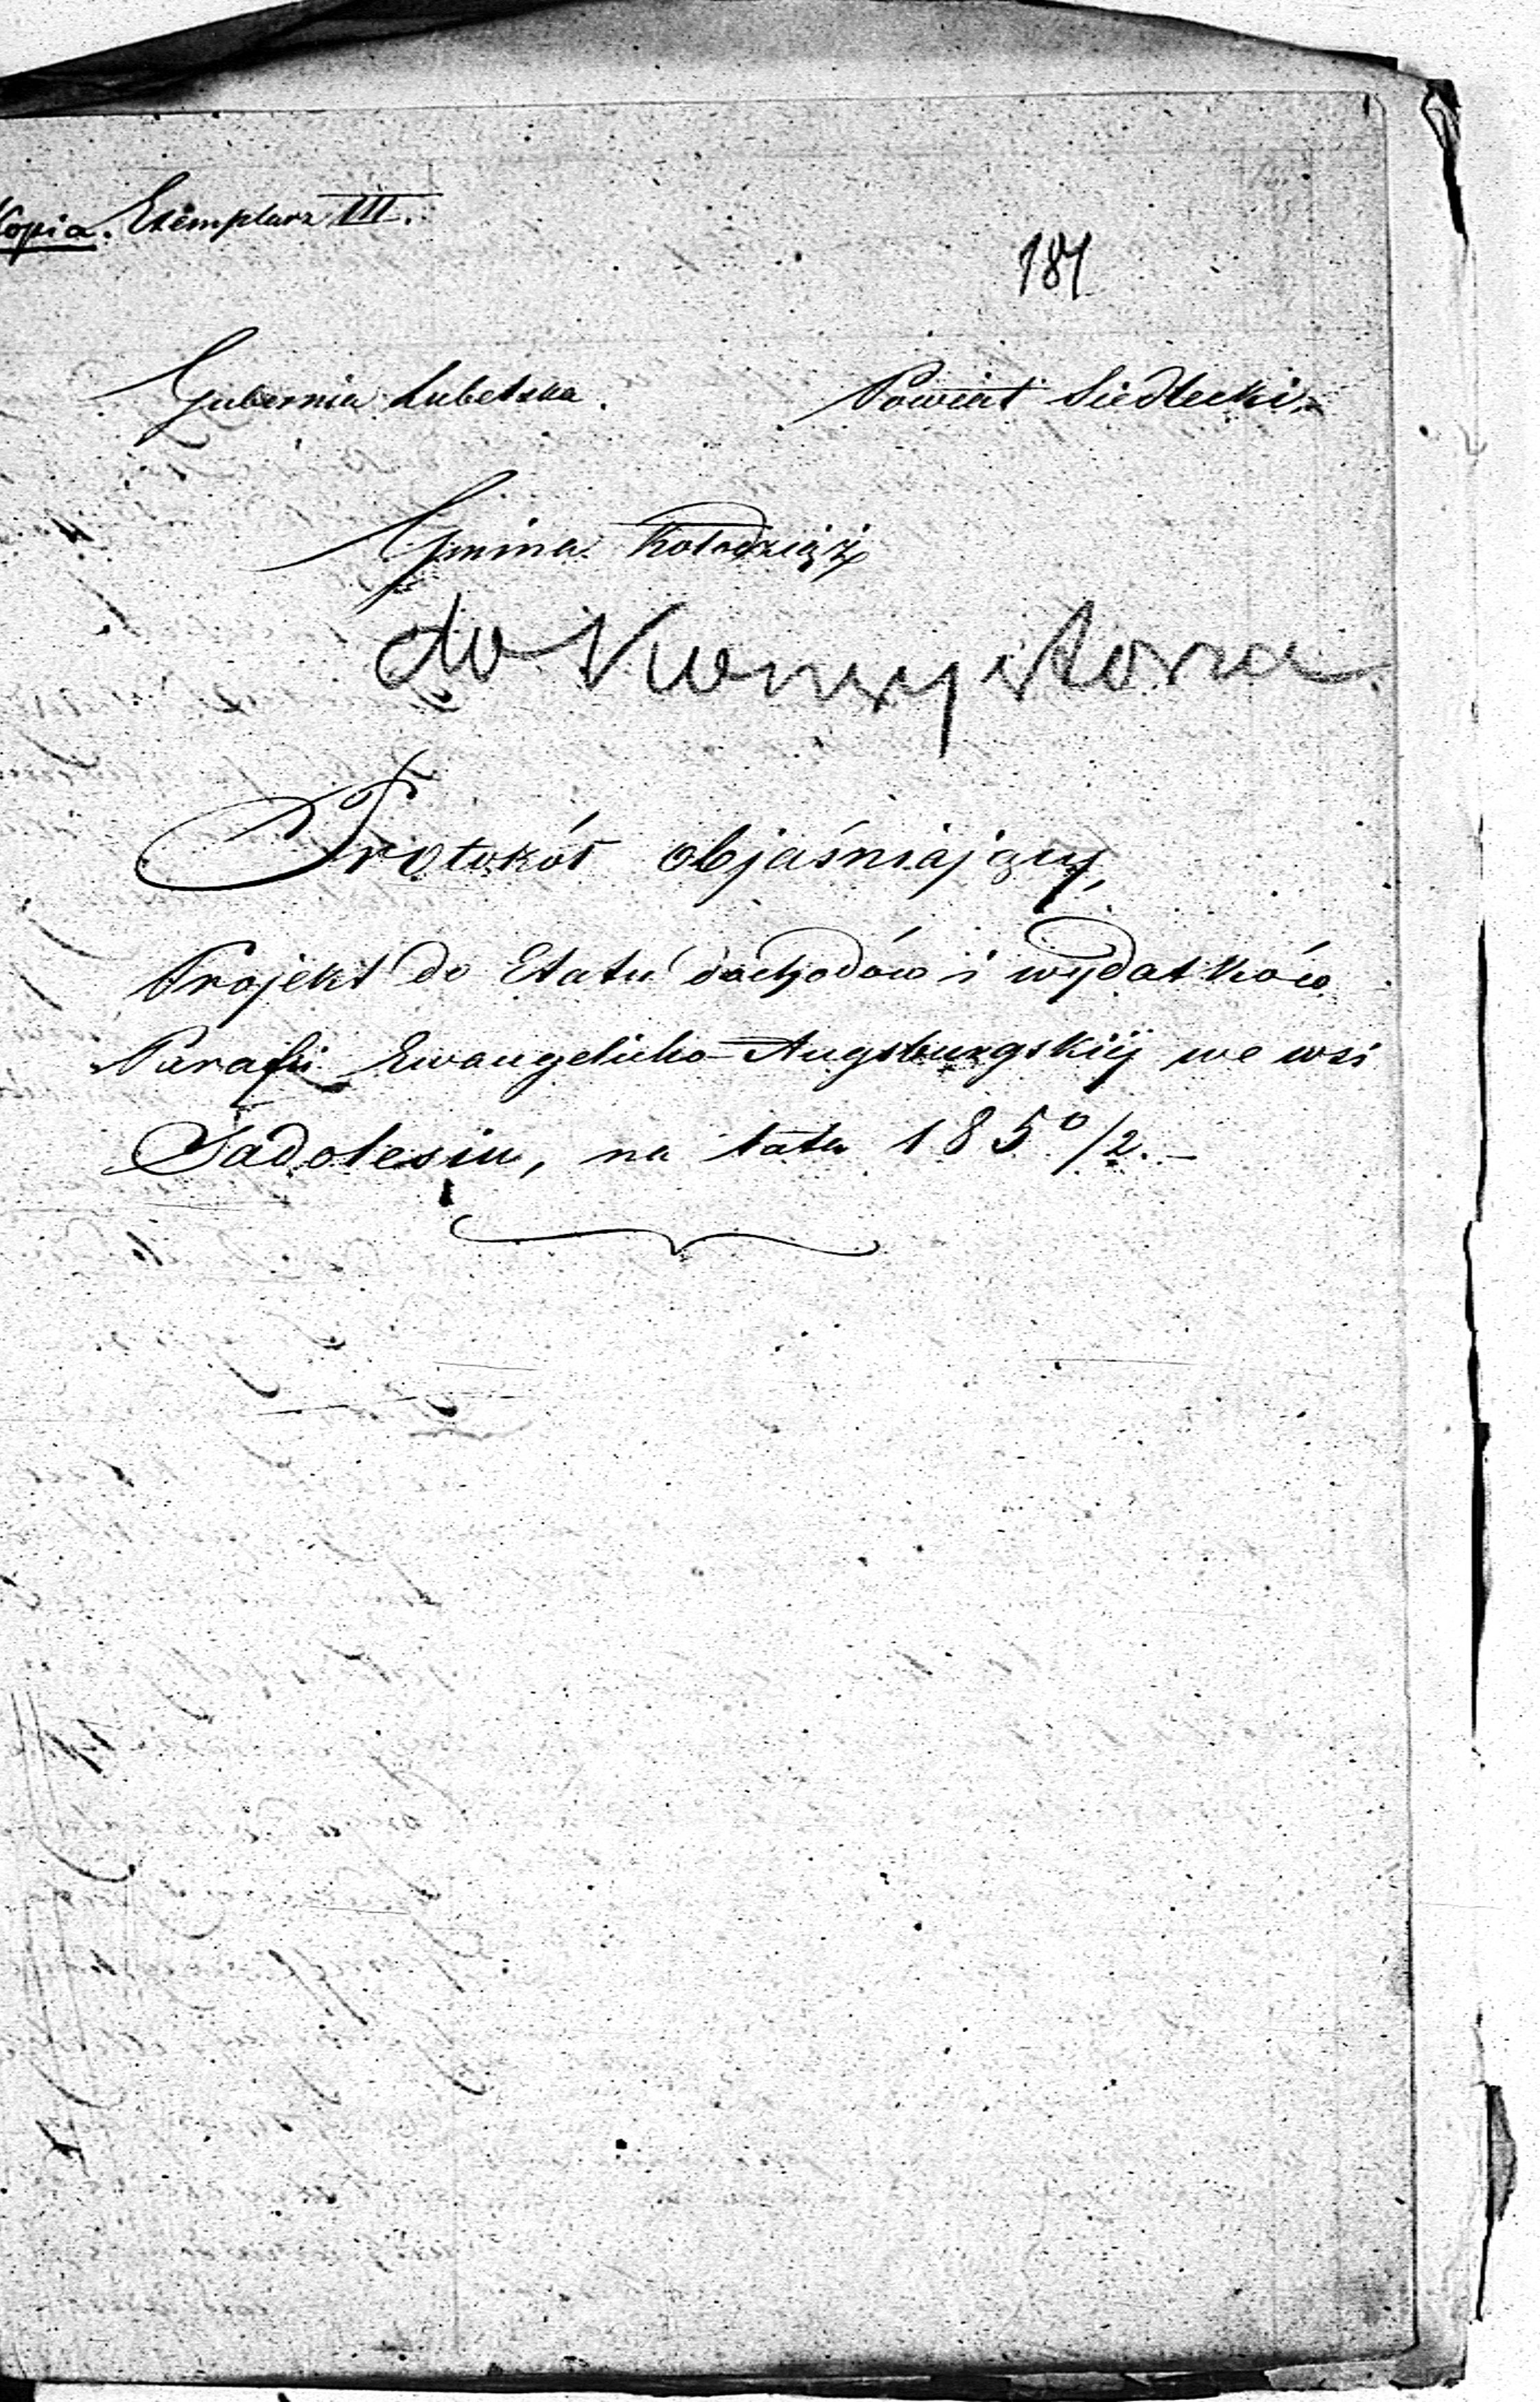 Kopia. Exemplarz III.
187
Gubernia Lubelska. Powiat Siedlecki.
Gmina Kołodziąż
do Konsystorza.
Protokół objaśniający,
Projekt do Etatu dochodów i wydatków
Parafii Ewangelicko-Augsburgskiéj we wsi
Sadolesiu, na lata 185⁰/2.